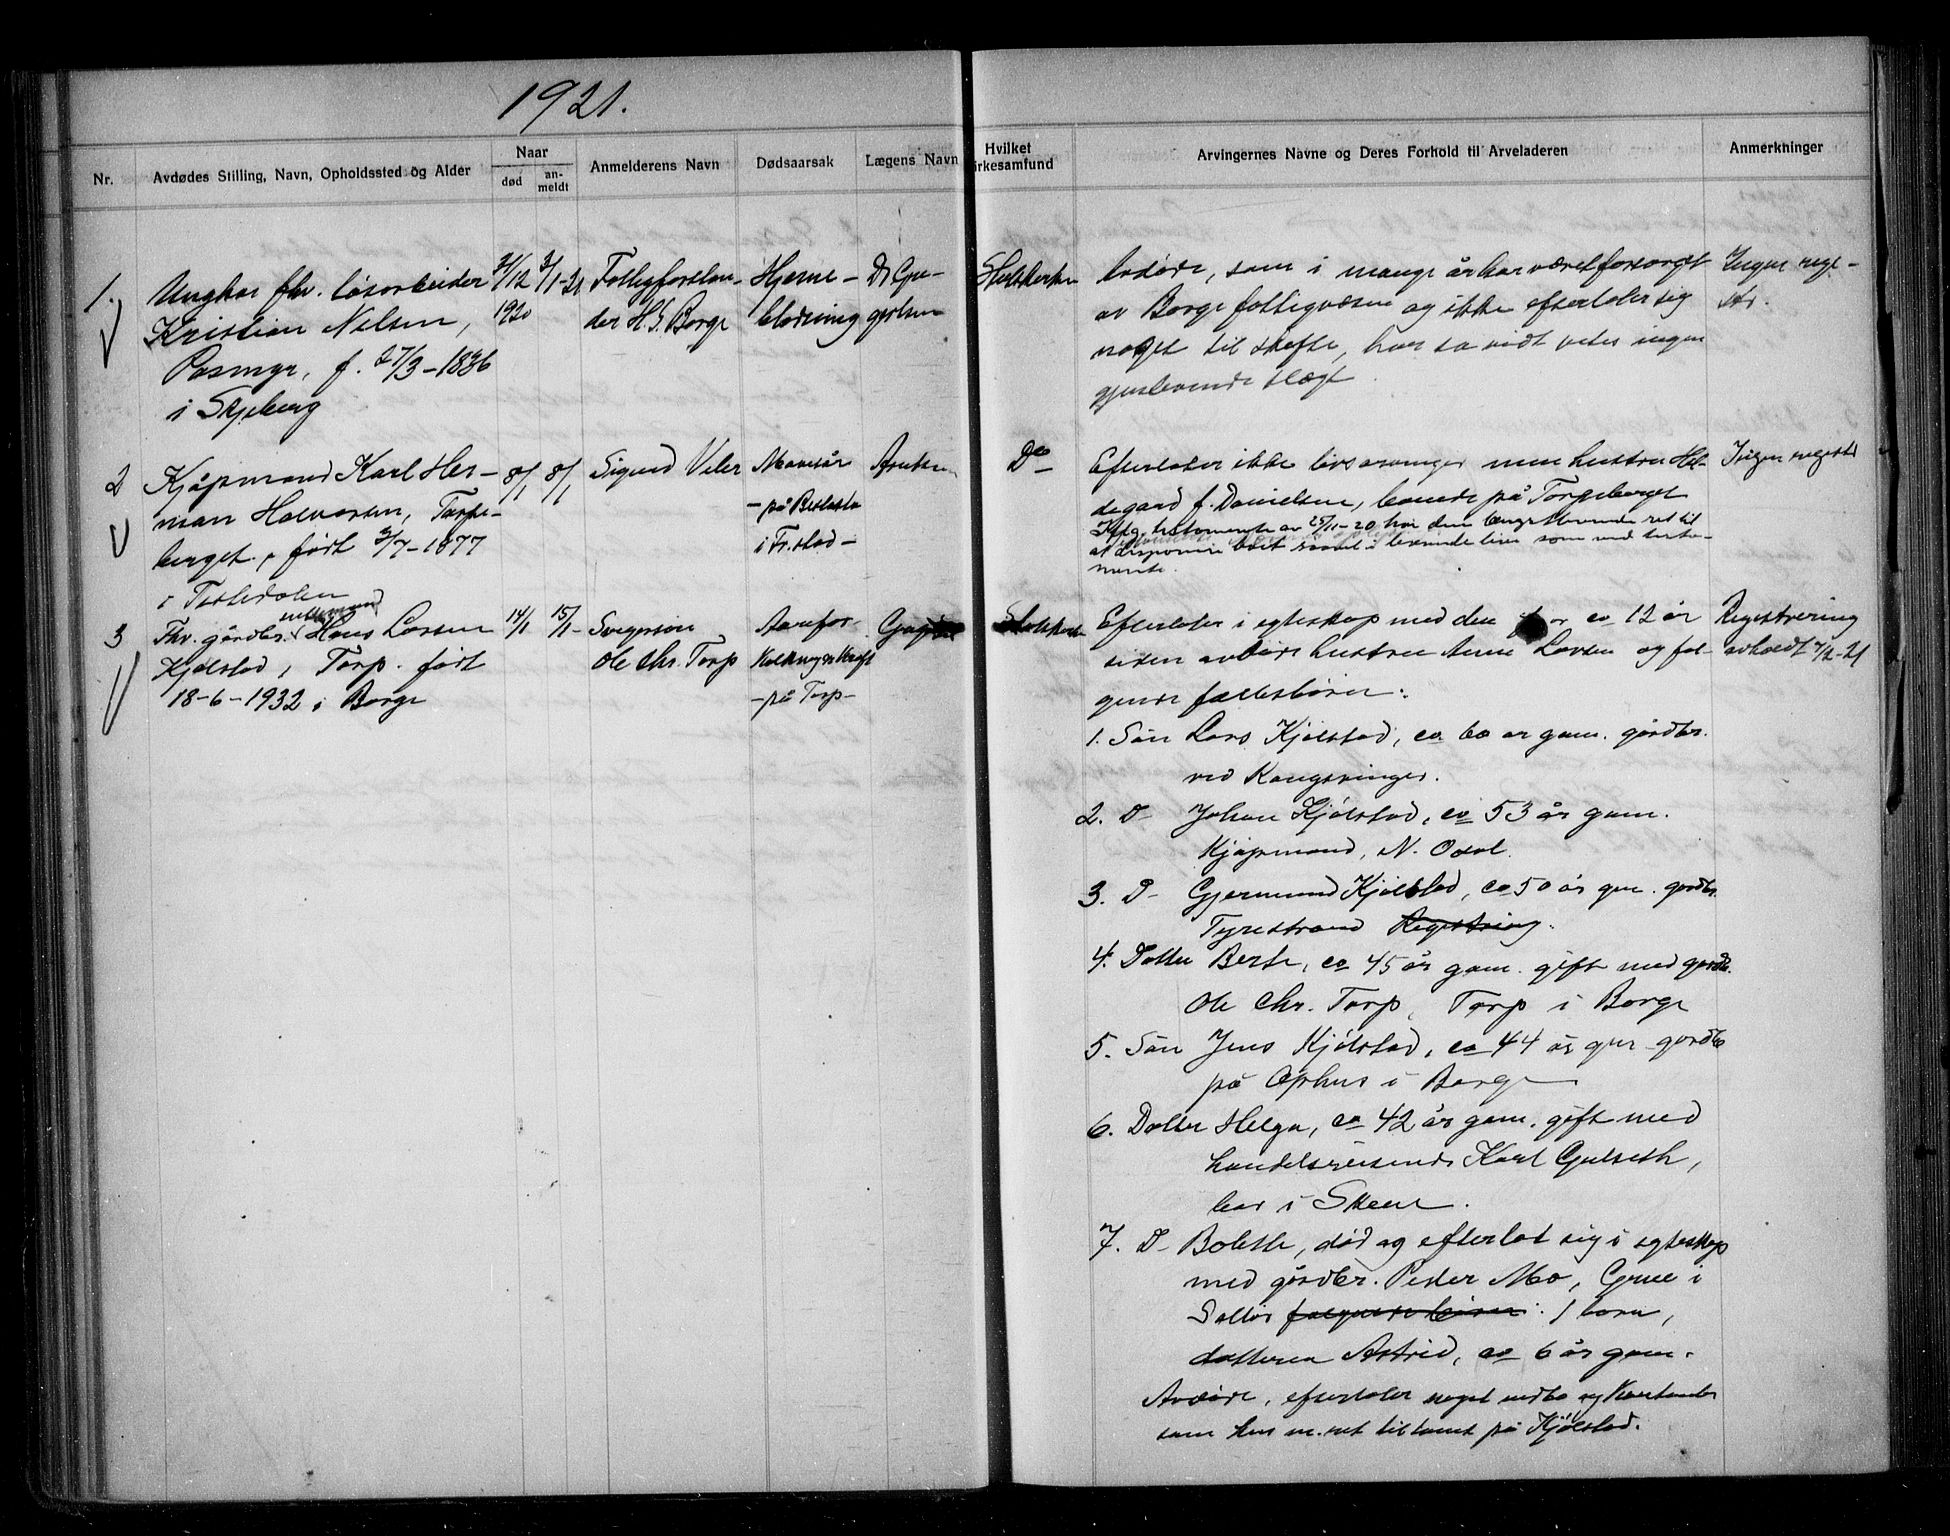 1921.
Nr.
Avdødes Stilling, Navn, Opholdssted og Alder
Naar
død
an-
meldt
Anmelderens Navn
Dødsaarsak
Lægens Navn
Hvilket
irkesamfund
Arvingernes Navne og Deres Forhold til Arveladeren
Anmerkninger
1.
Ungkar fhv. løsarbeider
Kristian Nilsen,
Posmyr, f. 27/3-1836
i Skjeberg
31/12
1920
3/1-21
Fattigforstan-
der H. G. Borge
Hjerne-
blødning
Dr
Statskirken
Avdøde, som i mange år har været forsørget
av Borge fattigvæsen og ikke efterlater sig
noget til skifte, har så vidt vites ingen
gjenlevende slægt.
Ingen regi-
str.
2
Kjøpmand Karl Her-
man Halvorsen, Torpe-
berget, født 3/7-1877
i Tistedalen
8/1
8/1
Sigurd Viler
Mavesår
-på
i Fr.stad-
Do
Efterlater ikke livsarvinger men hustru Hil-
degard f. Danielsen, boende på Torpeberget
Ifølg. testamente av 25/11-20 har den længstlevende ret til
at disponere boet saavel i levende live som ved testa-
mente.
Ingen registr
3
Fhv. gårdbr. enkemand Hans Larsen
Kjølstad, Torp. født
18-6-1932 i Borge
14/1
15/1
Svigersøn
Ole Chr. Torp
Aarefor-
kalkning
-på Torp-
Statskirken
Efterlater i egteskap med den for ca 12 år
siden avdøde hustru Anne Larsen og føl-
gende fællesbørn:
1. Søn Lars Kjølstad, ca 60 år gam. gårdbr.
ved Kongsvinger.
2. D- Johan Kjølstad, ca 53 år gam.
Kjøpmand, N. Odal.
3. D- Gjermund Kjølstad, ca 50 år gm. gårdbr.
Tyrestrand Registrering.
4. Datter Berte, ca 45 år gam. gift med gårdb.
Ole Chr. Torp, Torp i Borge
5. Søn Jens Kjølstad, ca 44 år gm gårdb
på Ophus i Borge
6. Datter Helga, ca 42 år gam. gift med
handelsreisende Karl Gulseth,
bor i Skien.
7. D- Bolette, død og efterlot sig i egteskap
med gårdbr. Peder Mo, Grue i
Solør følgende børn: 1 barn,
datteren Astrid, ca 6 år gam.
Avdøde, efterlater noget indbo og kontanter
som han m. ret til tomt på Kjølstad.
Registrering
avholdt 7/2-21